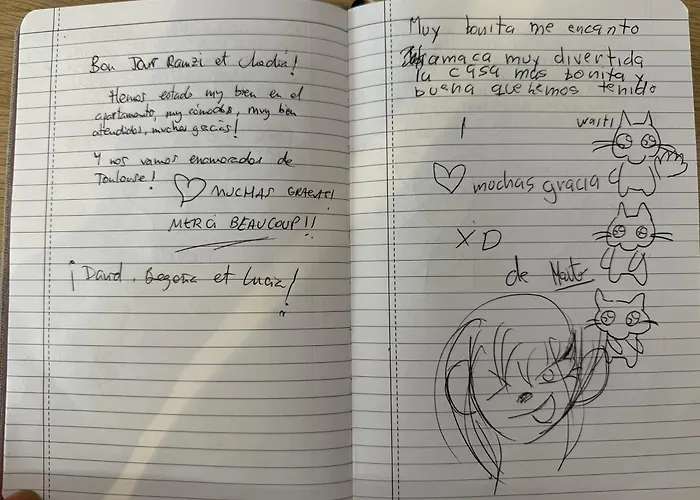 Bon Jour Ramzi et Chadia!
Hemos estado my bien en el
apartamento, my cómodos, muy bien
atendidos, muchas gracias!
Y nos vamos enamorados de
Toulouse!
MUCHAS GRACIAS!
MERCI BEAUCOUP!!
¡David, Begoña et Lucia!
Muy bonita me encanto
amaca muy divertida
la casa mas bonita y
buena que hemos tenido
1
wait!
muchas gracia
X'D
de